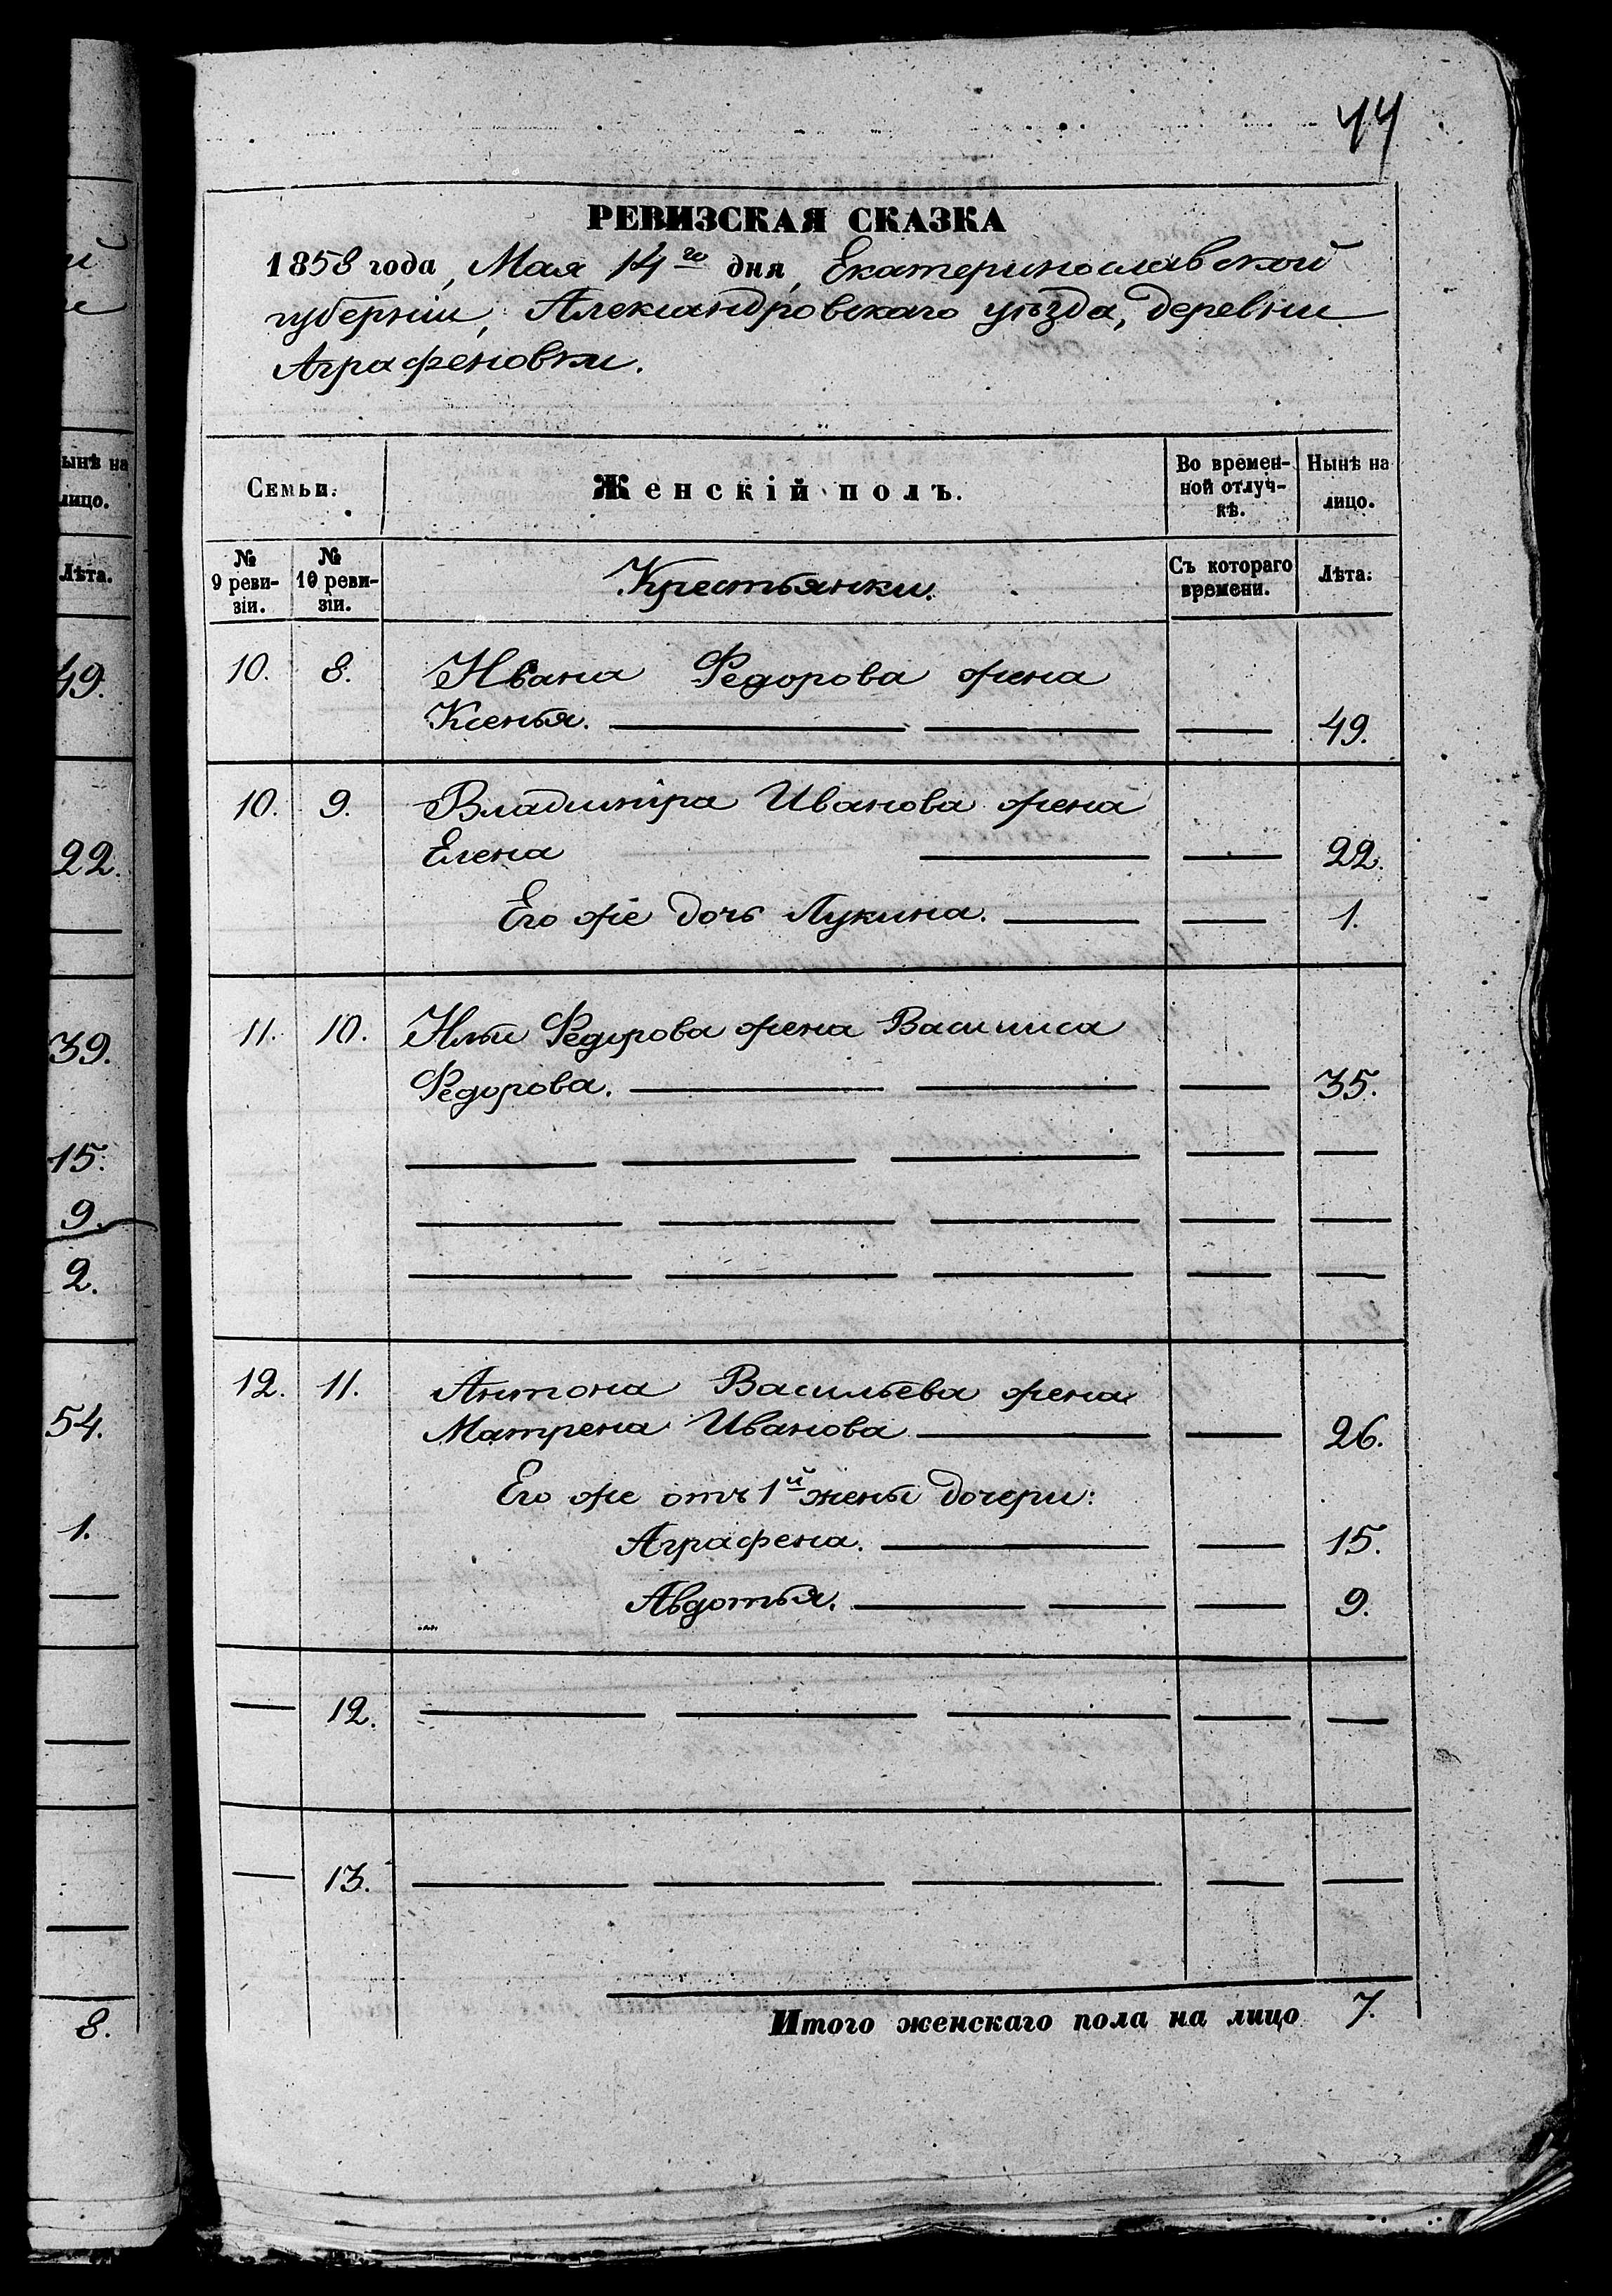 44
РЕВИЗСКАЯ СКАЗКА
1858 года, Мая 14го дня, Екатеринославской
губерніи, Александровскаго уѣзда, деревни
Аграфеновки.
Семьи.
Женскій полъ.
Во времен-
ной отлуч-
кѣ.
Нынѣ на
лицо.
№
9 реви-
зіи.
№
10 реви-
зіи.
Крестьянки.
Съ котораго
времени.
Лѣта.
10. 8. Ивана Федорова жена
Ксенья. — — — 49.
10. 9. Владиміра Иванова жена
Елена — — 22.
Его же дочь Лукина. — — 1.
11. 10. Ильи Федорова жена Василиса
Федорова. — — — 35.
— — — — —
— — — — —
— — — — —
12. 11. Антона Васильева жена
Матрена Иванова — — 26.
Его же отъ 1й жены дочери:
Аграфена. — — 15.
Авдотья. — — — 9.
— 12. — — — — —
— 13. — — — — —
Итого женскаго пола на лицо 7.
й
е
ынѣ на
лицо.
Лѣта.
49.
22.
—
39.
15.
9.
2.
54.
1.
—
—
—
8.